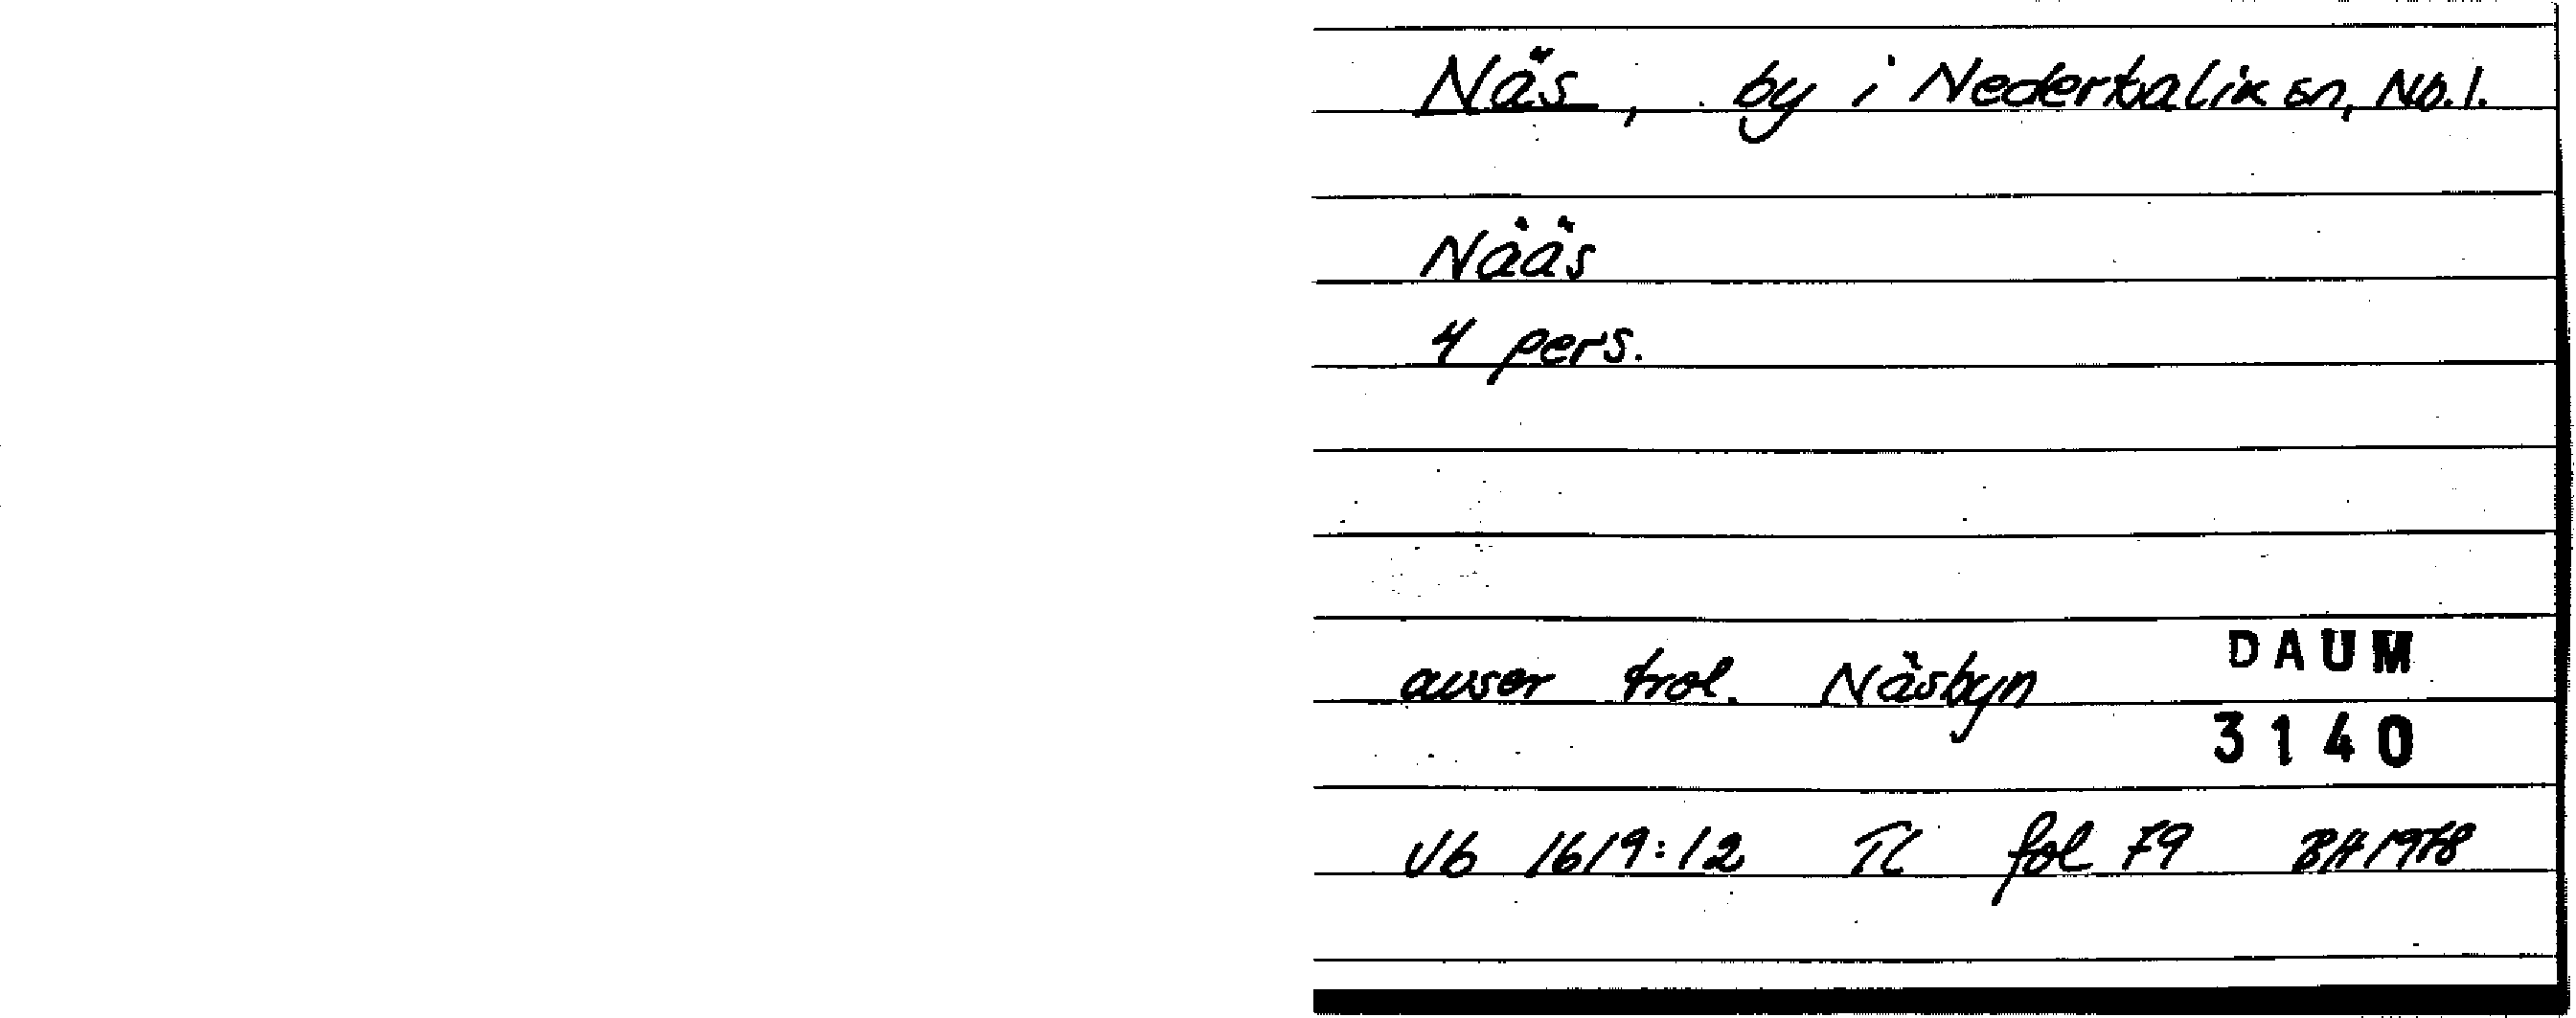 Näs, by i Nederkalix sn, Nb. l.
Nääs
4 pers.
avser trol. Näsbyn
DAUM
3140
Vb 1619:12 TL fol 79 BH 1978